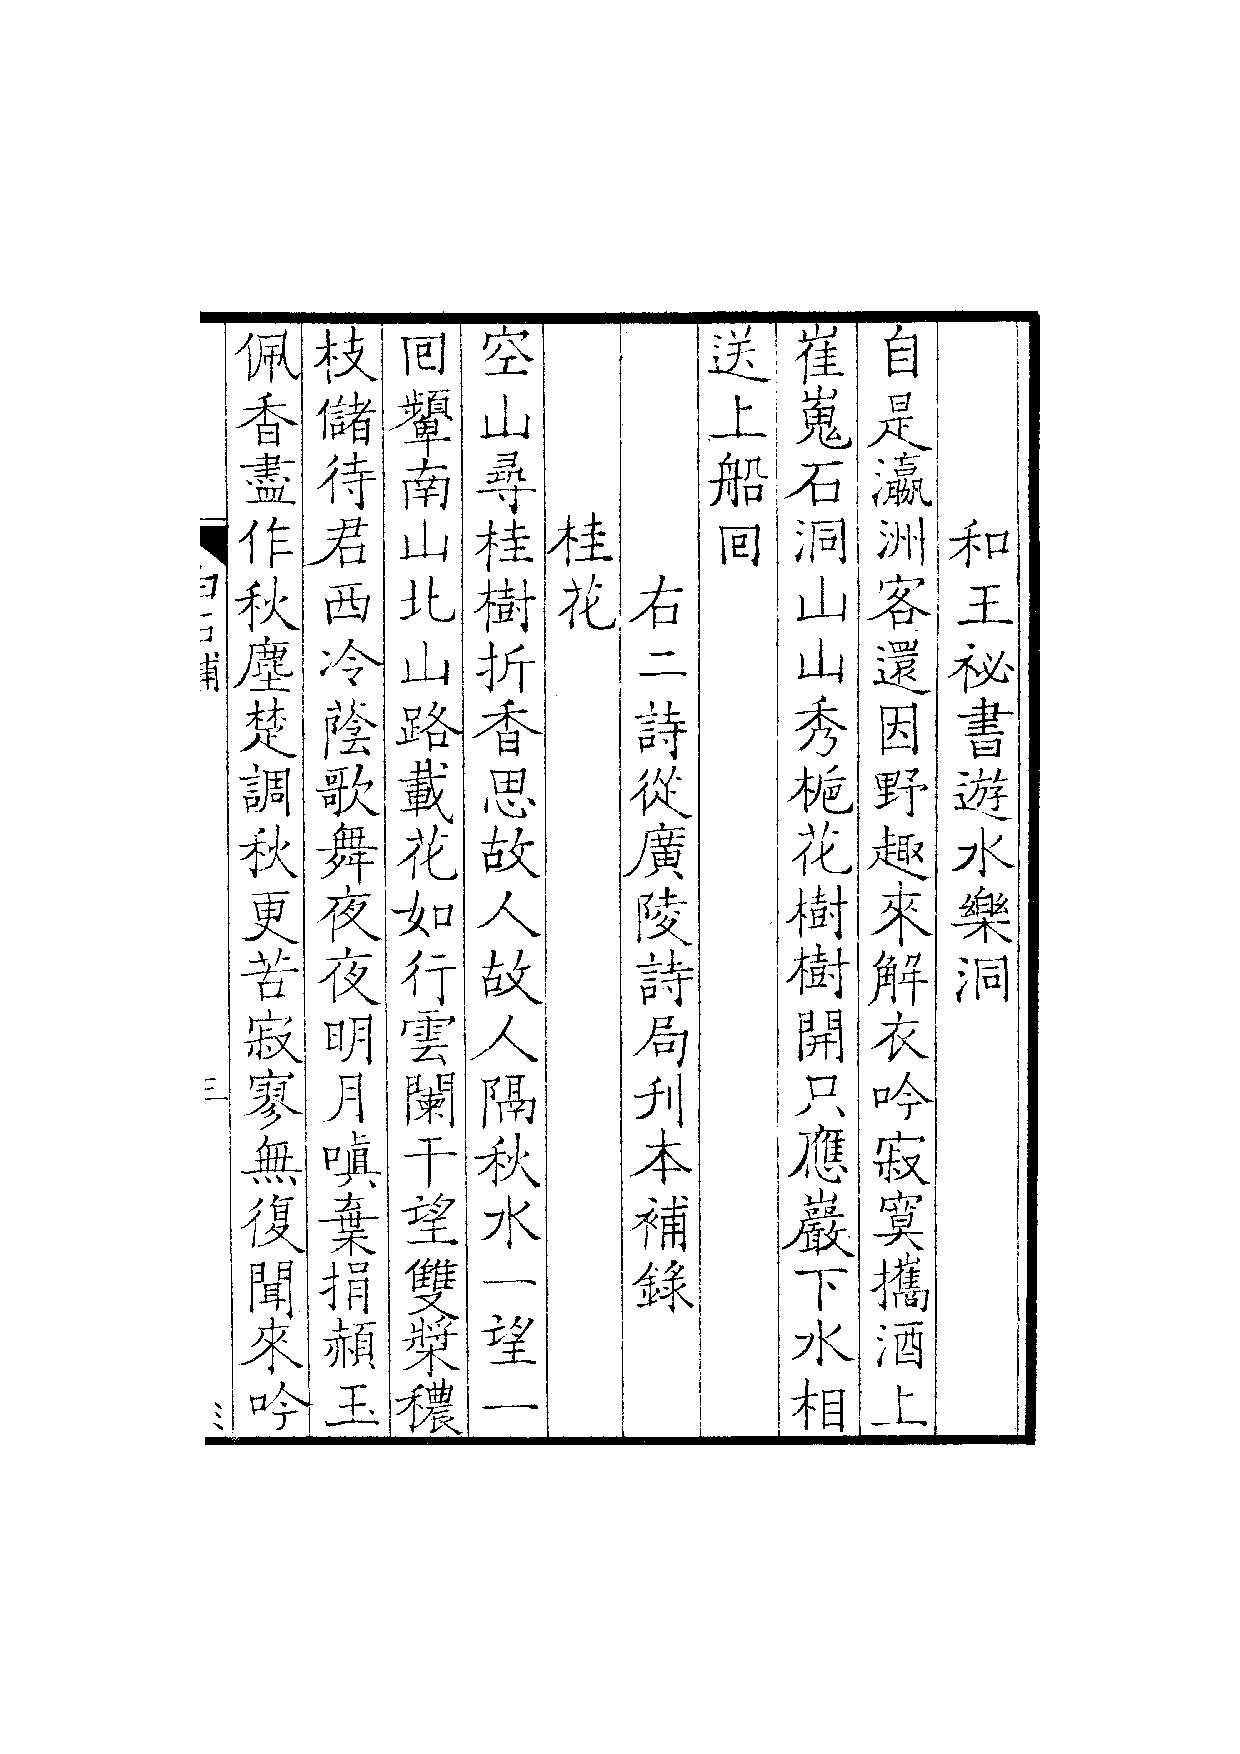 和王祕書遊水樂洞
自是瀛洲客還因野趣來解衣吟寂寞攜酒上
崔嵬石洞山山秀梔花樹樹開只應巖下水相
送上船回
右二詩從廣陵詩局刊本補錄
桂花
空山尋桂樹折香思故人故人隔秋水一望一
回顰南山北山路載花如行雲闌干望雙槳穠
枝儲待君西冷蔭歌舞夜夜明月嗔棄捐赬玉
佩香盡作秋塵楚調秋更苦寂寥無復聞來吟
白石補
三